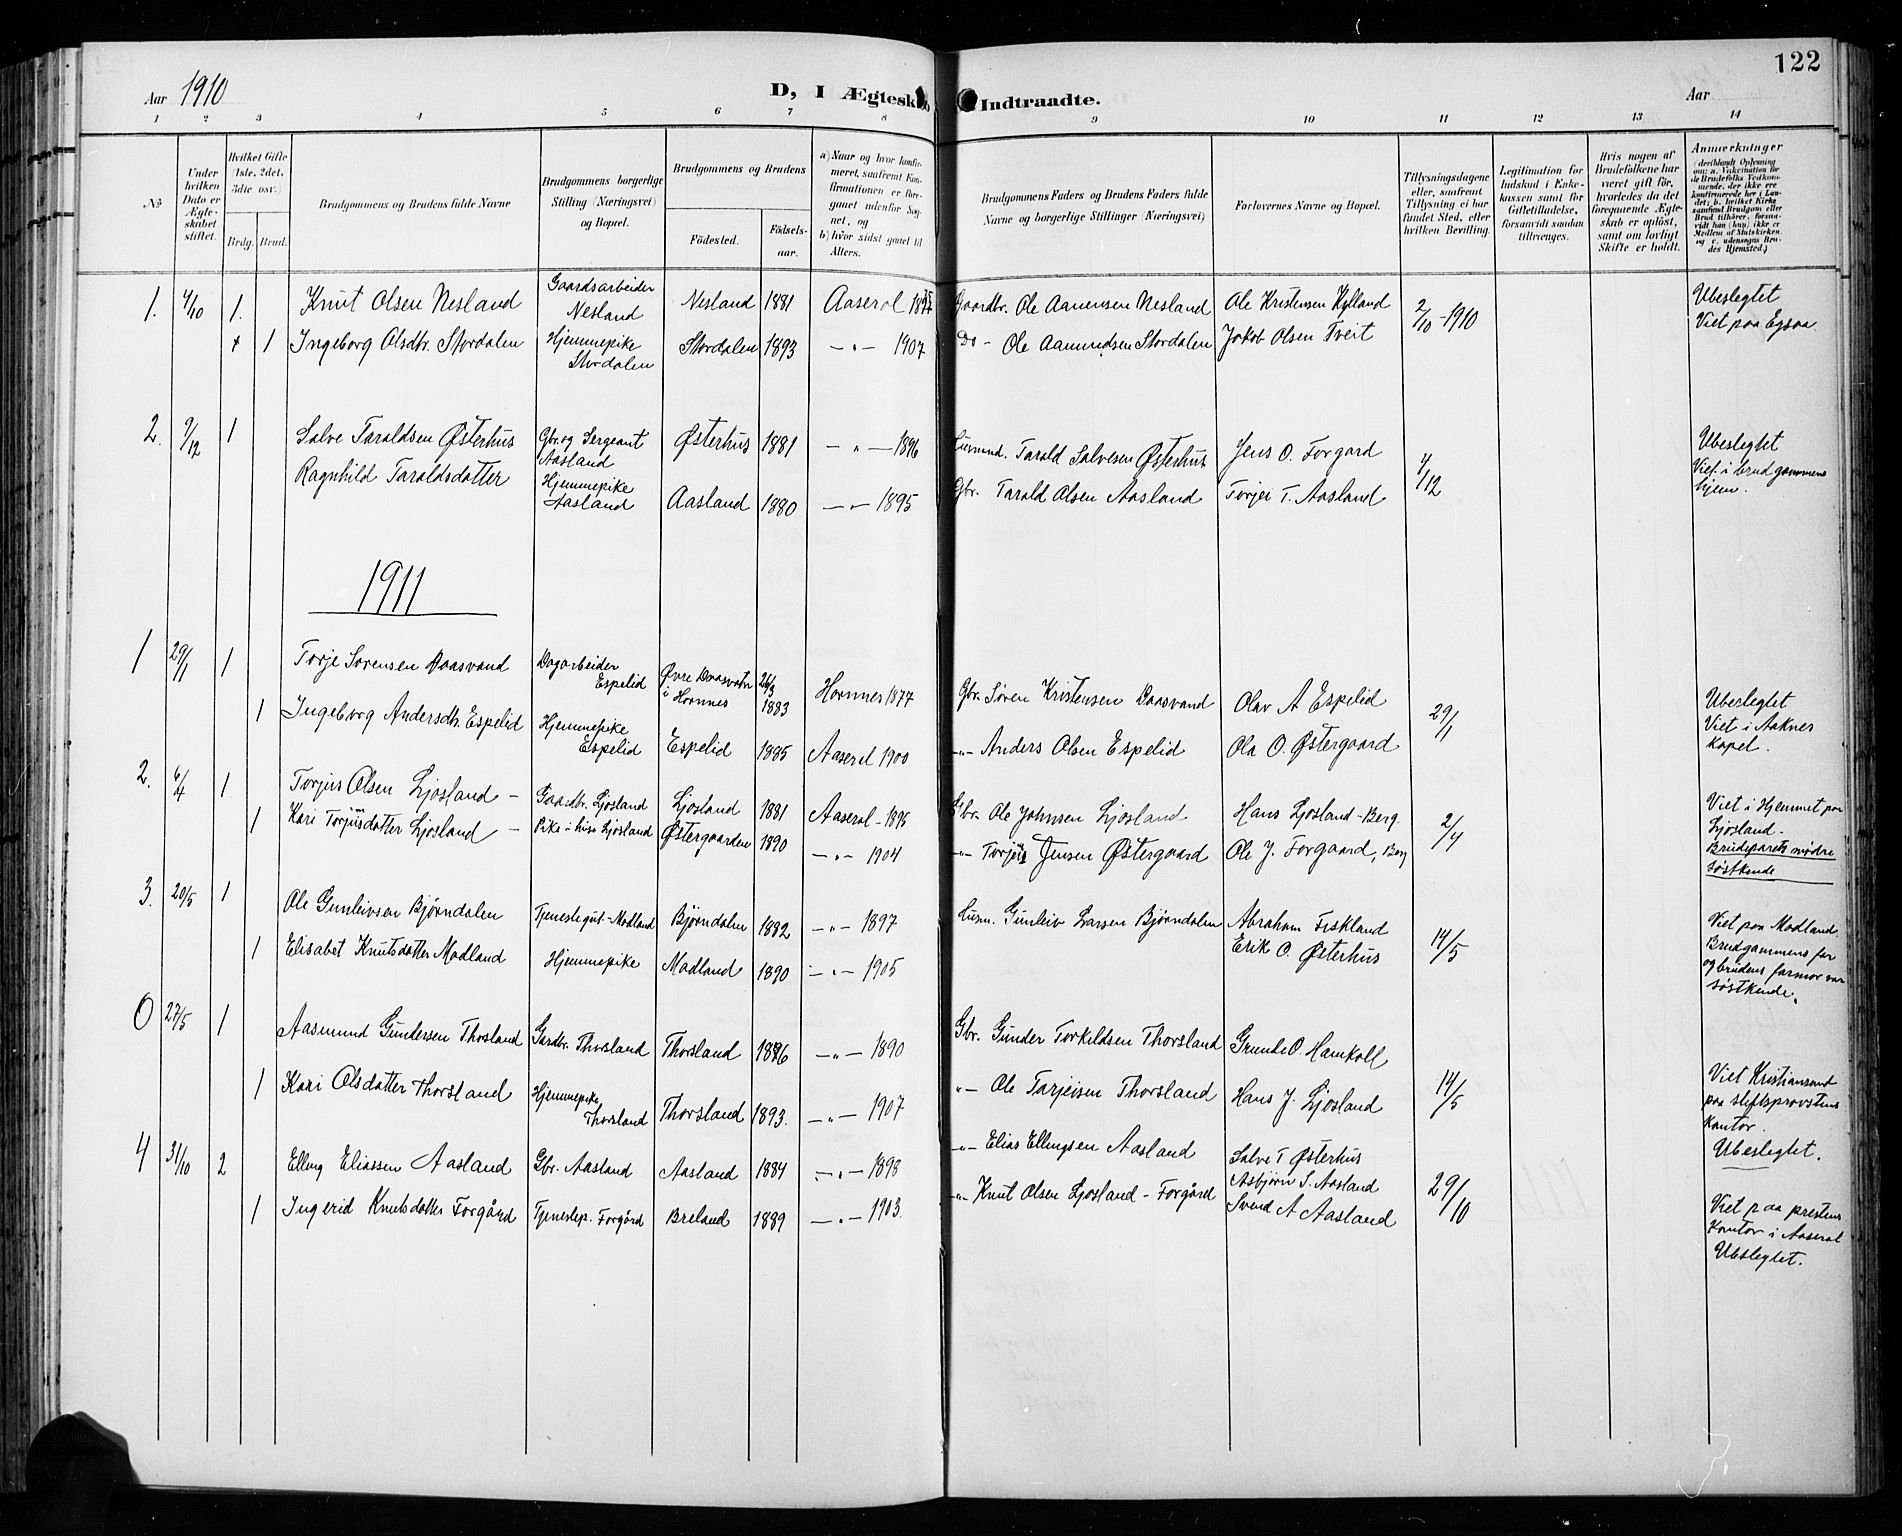 122
Aar 1910
D, I Ægteskab Indtraadte.
Aar
1 2 3 4 5 6 7 8 9 10 11 12 13 14
No
Under hvilken Dato er Ægteskabet stiftet.
Hvilket Gifte (1ste, 2det, 3die osv.)
Brdg. Brud.
Brudgommens og Brudens fulde Navne
Brudgommens borgerlige Stilling (Næringsvei) og Bopæl.
Brudgommens og Brudens
Födested.
Födselsaar.
a) Naar og hvor konfirmeret, saafremt Konfirmationen er foregaaet udenfor Sognet, og
b) hvor sidst gaaet til Alters.
Brudgommens Faders og Brudens Faders fulde Navne og borgerlige Stillinger (Næringsvei)
Forlovernes Navne og Bopæl.
Tillysningsdagene eller, saafremt Tillysning ei har fundet Sted, efter hvilken Bevilling.
Legitimation for Indskud i Enkekassen samt for Giftetilladelse, forsaavidt saadan tiltrænges.
Hvis nogen af Brudefolkene har været gift för, hvorledes da det foregaaende Ægteskab er oplöst, samt om lovligt Skifte er holdt.
Anmerkninger
1. 4/10 1. Knut Olsen Nesland Gaardsarbeider Nesland Nesland 1881 Aaseral Gaardbr. Ole Aanensen Nesland Ole Kristensen Kylland 2/10-1910 Ubeslegtet Viet paa Egsaa.
+ 1 Ingeborg Olsdtr. Stordalen Hjemmepike Stordalen Stordalen 1893 —"— 1907 Do - Ole Aamundsen Stordalen Jakob Olsen Tveit
2. 9/12 1 Salve Taraldsen Østerhus Gbr. og Sergeant Aasland Østerhus 1881 —"— 1896 Husmnd. Tarald Salvesen Østerhus Jens O. Forgard 4/12 Ubeslegtet Viet i brudgommens hjem.
Ragnhild Taraldsdatter Hjemmepike Aasland Aasland 1880 —"— 1895 Gbr. Tarald Olsen Aasland Torjei T. Aasland
1911
1 29/1 1 Torje Sorensen Daasvand Dagarbeider Espelid Øvre Daasvatn i Hornnes 26/3 1883 Hornnes 1877 Gbr. Søren Kristensen Daasvand Olav A Espelid 29/1 Ubeslegtet Viet i Aaknes kapel.
1 Ingeborg Andersdtr. Espelid Hjemmepike Espelid Espelid 1885 Aaseral 1900 —"— Anders Olsen Espelid Ola O. Østergaard
2. 6/4 1 Torjus Olsen Ljosland - Gaardbr. Ljosland Ljosland 1881 Aaseral - 1895 Gbr. Ole Johnsen Ljosland Hans Ljosland - Berg. 2/4 Viet i Hjemmet paa Ljosland - Brudeparets mødre søskende
1 Kari Torjusdatter Ljosland - Pike i huse Ljosland Østergaarden 1890 —"— 1904 —"— Jensen Østergaard Ole J. Forgaard, Berg
3. 20/5 1 Ole Gunleivsen Bjørndalen Tjenestegut - Modland Bjørndalen 1882 —"— 1897 Husm. Gunleiv Larsen Bjørndalen Abraham Fiskland 14/5 Viet paa Modland. Brudgommens far og brudens farmor var søskende.
1 Elisabet Knutsdatter Modland Hjemmepike Modland 1890 —"— 1905 Erik O. Østerhus
0 27/5 1 Aasmund Gundersen Thorsland Gardbr. Thorsland Thorsland —"— 1890 Gbr. Gunder Torkildsen Thorsland Grunde O. Hamkoll 14/5 Viet Kristiansand paa stiftsprovstens kontor. Ubeslegtet.
1 Kari Olsdatter Thorsland Hjemmepike Thorsland Thorsland 1893. —"— 1907 "— Ole Tarjeisen Thorsland Hans J. Ljosland
4 31/10 2 Elling Eliassen Aasland Gbr. Aasland Aasland 1884 —"— 1898 —"— Elias Ellingsen Aasland Salve T Østerhus Asbjørn S. Aasland 29/10 Viet paa prestens kontor i Aaseral Ubeslegtet.
1 Ingerid Knutsdatter Forgård Tjenestep. Forgård Breland 1889 —"— 1903. —"— Knut Olsen Ljosland - Forgård Svend A Aasland